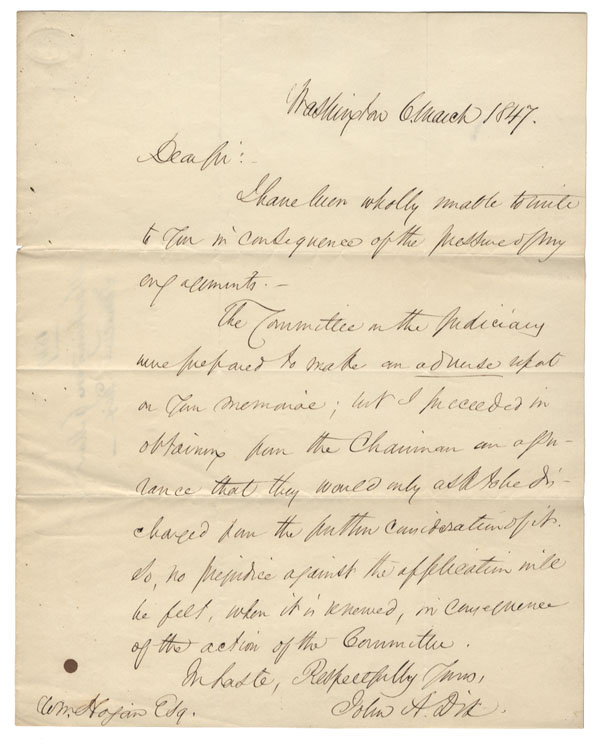 Washington 6 March 1847.
Dear Sir:-
I have been wholly unable to write
to you in consequence of the pressure of my
engagements. -
The Committee on the Judiciary
were prepared to make an adverse report
on your memorial; but I succeeded in
obtaining from the Chairman an assu-
rance that they would only ask to be dis-
charged from the further consideration of it.
So, no prejudice against the application will
be felt, when it is renewed, in consequence
of the action of the Committee.
In haste, Respectfully Yours,
John A. Dix.
Wm. Hogan Esq.